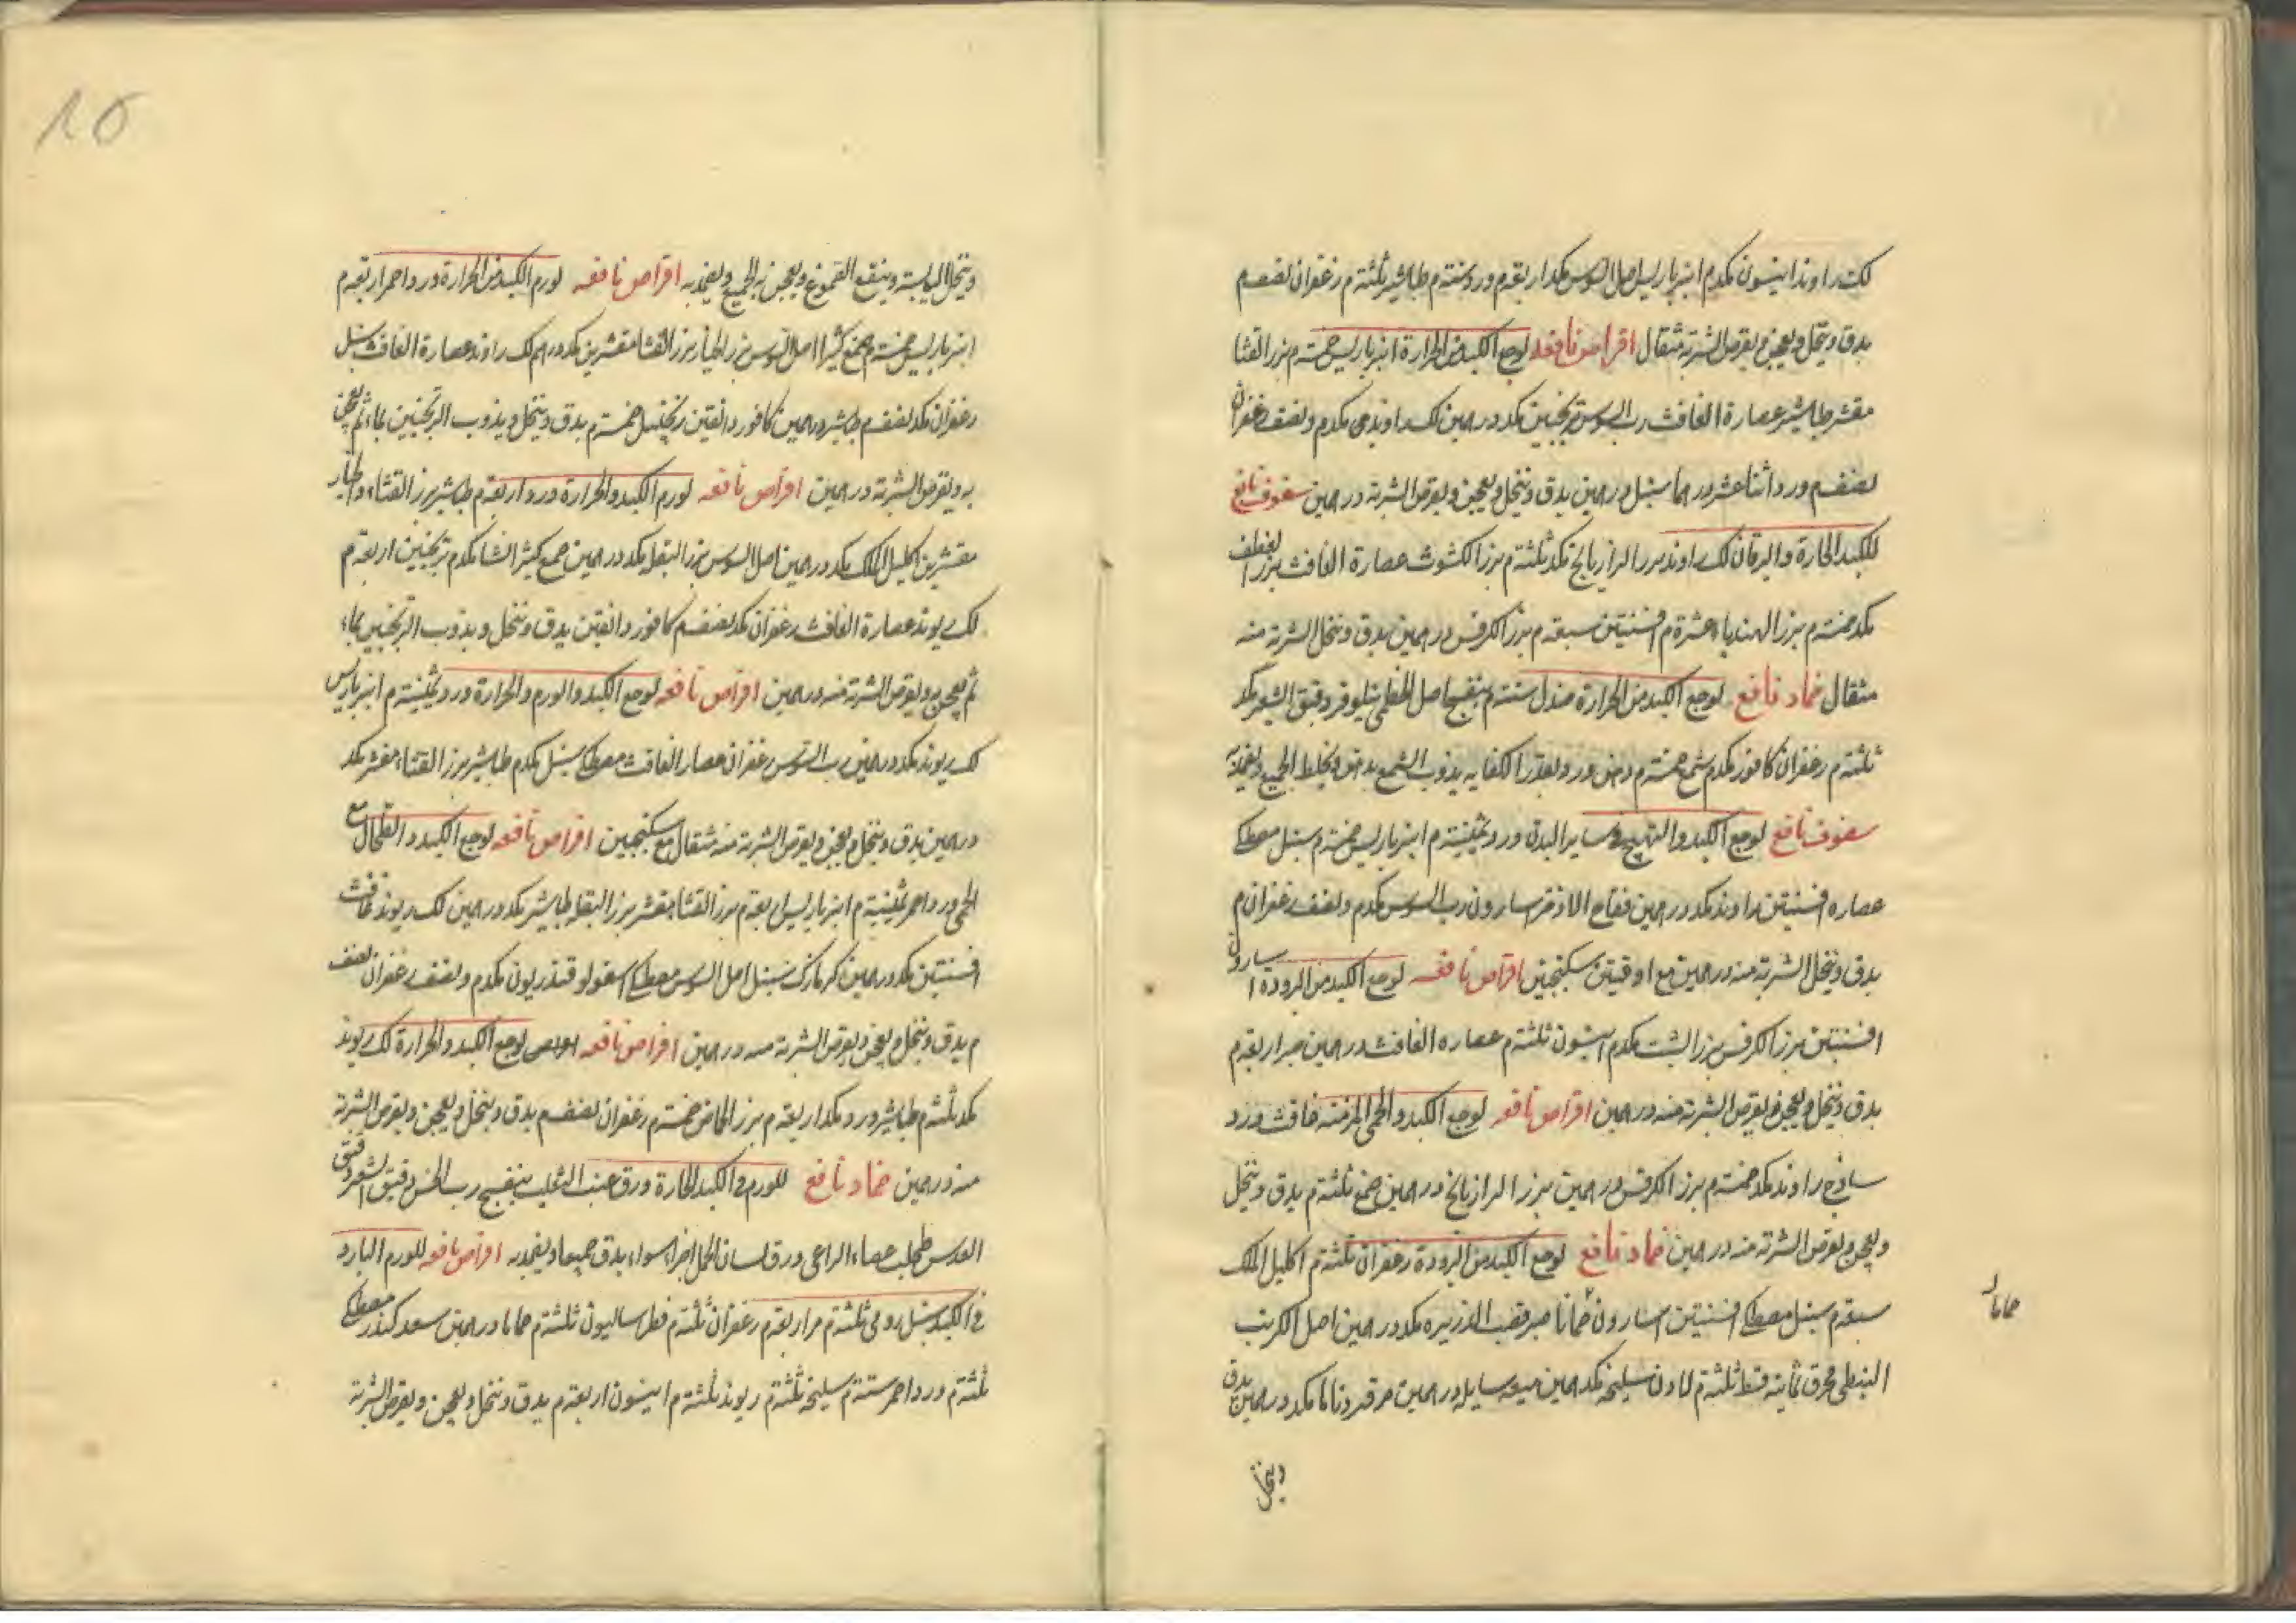 لك راوند انيسون مكدم انبرباريس اصل السوس مكد اربعة م ورد ستة م طباشير ثلثة م زعفران نصف م
يدق وينخل ويعجن ويقرص الشربة مثقال اقراص نافعه لوجع الكبد من الحرارة انبرباريس خمسة م بزر القثا
مقشر طباشير عصارة الغافث رب السوس ترنجبين مكد درهمين لك راوند مكدم ونصف زعفران
نصف م ورد اثنا عشر درهما سنبل درهمين يدق وينخل ويعجن ويقرص الشربة درهمين سفوف نافع
للكبد الحارة واليرقان لك راوند بزر الرازيانج مكد ثلثة م بزر الكشوث عصارة الغافث بزر القطف
مكد خمسة م بزر الهندباء عشرة م افسنتين سبعة م بزر الكرفس درهمين يدق وينخل الشربة منه
مثقال ضماد نافع لوجع الكبد من الحرارة صندل ستة م بنفسج اصل الخطمى نيلوفر دقيق الشعير مكد
ثلثة م زعفران كافور مكدم شمع خمسة م دهن ورد بقدر الكفايه يذوب الشمع بدهن ويخلط الجميع ويضمد به
سفوف نافع لوجع الكبد والتهيج فى ساير البدن ورد ثمنية م انبرباريس خمسة م سنبل مصطكى
عصاره افسنتين راوند مكد درهمين فقاح الاذخر اسارون رب السوس مكدم ونصف زعفران م
يدق وينخل الشربة منه درهمين مع اوقيتين سكنجبين اقراص نافعه لوجع الكبد من البرودة اسارون
افسنتين بزر الكرفس بزر الشبت مكدم انيسون ثلثة م عصاره الغافث درهمين صبر اربعة م
يدق وينخل ويعجن ويقرص الشربة منه درهمين اقراص نافعه لوجع الكبد والحمى المزمنه غافث ورد
ساذج راوند مكد خمسة م بزر الكرفس درهمين بزر الرازيانج درهمين صمغ ثلثة م يدق وينخل
ويعجن ويقرص الشربة منه درهمين ضماد نافع لوجع الكبد من البرودة زعفران ثلثة م اكليل الملك
سبعة م سنبل مصطكى افسنتين اسارون حماما صبر قصب الذريره مكد درهمين اصل الكرنب
النبطى محرق ثمانية قسط ثلثة م لادن سليخه مكد درهمين ميعه سايله درهمين يدق
حماما
وينخل
10
وينخل اليابسة وينقع الصموغ ويعجن به الجميع ويضمد به اقراص نافعه لورم الكبد من الحرارة ورد احمر اربعة م
انبرباريس خمسة م صمغ كثيرا اصل السوس بزر الخيار بزر القثا مقشرين مكد درهم لك راوند عصارة الغافث سنبل
زعفران مكد نصف م طباشير درهمين كافور دانقين ترنجبين خمسة م يدق وينخل ويذوب الترنجبين بماء ثم يعجن
به ويقرص الشربة درهمين اقراص نافعه لورم الكبد والحرارة ورد اربعة م طباشير بزر القثاء والخيار
مقشرين اكليل الملك مكد درهمين اصل السوس بزر البقله مكد درهمين صمغ كثيرا نشا مكدم ترنجبين اربعة م
لك ريوند عصارة الغافث زعفران مكد نصف م كافور دانقين يدق وينخل ويذوب الترنجبين بماء
ثم يعجن به ويقرص الشربة منه درهمين اقراص نافعه لوجع الكبد والورم والحرارة ورد ثمنية م انبرباريس
لك ريوند مكد درهمين رب السوس زعفران عصار الغافث مصطكى سنبل مكدم طباشير بزر القثاء مقشر مكد
درهمين يدق وينخل ويعجن ويقرص الشربة منه مثقال مع سكنجبين اقراص نافعه لوجع الكبد والطحال مع
الحمى ورد احمر ثمنية م انبرباريس اربعة م بزر القثا مقشر بزر البقله طباشير مكد درهمين لك ريوند غافث
افسنتين مكد درهمين كزمازك سنبل اصل السوس مصطكى اسقولوقندريون مكدم ونصف زعفران نصف
م يدق وينخل ويعجن ويقرص الشربة منه درهمين اقراص نافعه لوجع الكبد والحرارة لك ريوند
مكد ثلثة م طباشير ورد مكد اربعة م بزر الحماض خمسة م زعفران نصف م يدق وينخل ويعجن ويقرص الشربة
منه درهمين ضماد نافع للورم فى الكبد الحارة ورق عنب الثعلب بنفسج دقيق الشعير دقيق
العدس طحلب عصاء الراعى ورق لسان الحمل اجزاء سواء يدق جميعا ويضمد به اقراص نافعه للورم البارد
فى الكبد سنبل رومى ثلثة م مر اربعة م زعفران ثلثة م فطراساليون ثلثة م حماما درهمين سعد كندر مصطكى
ثلثة م ورد احمر ستة م سليخه ثلثة م ريوند ثلثة م انيسون اربعة م يدق وينخل ويعجن ويقرص الشربة